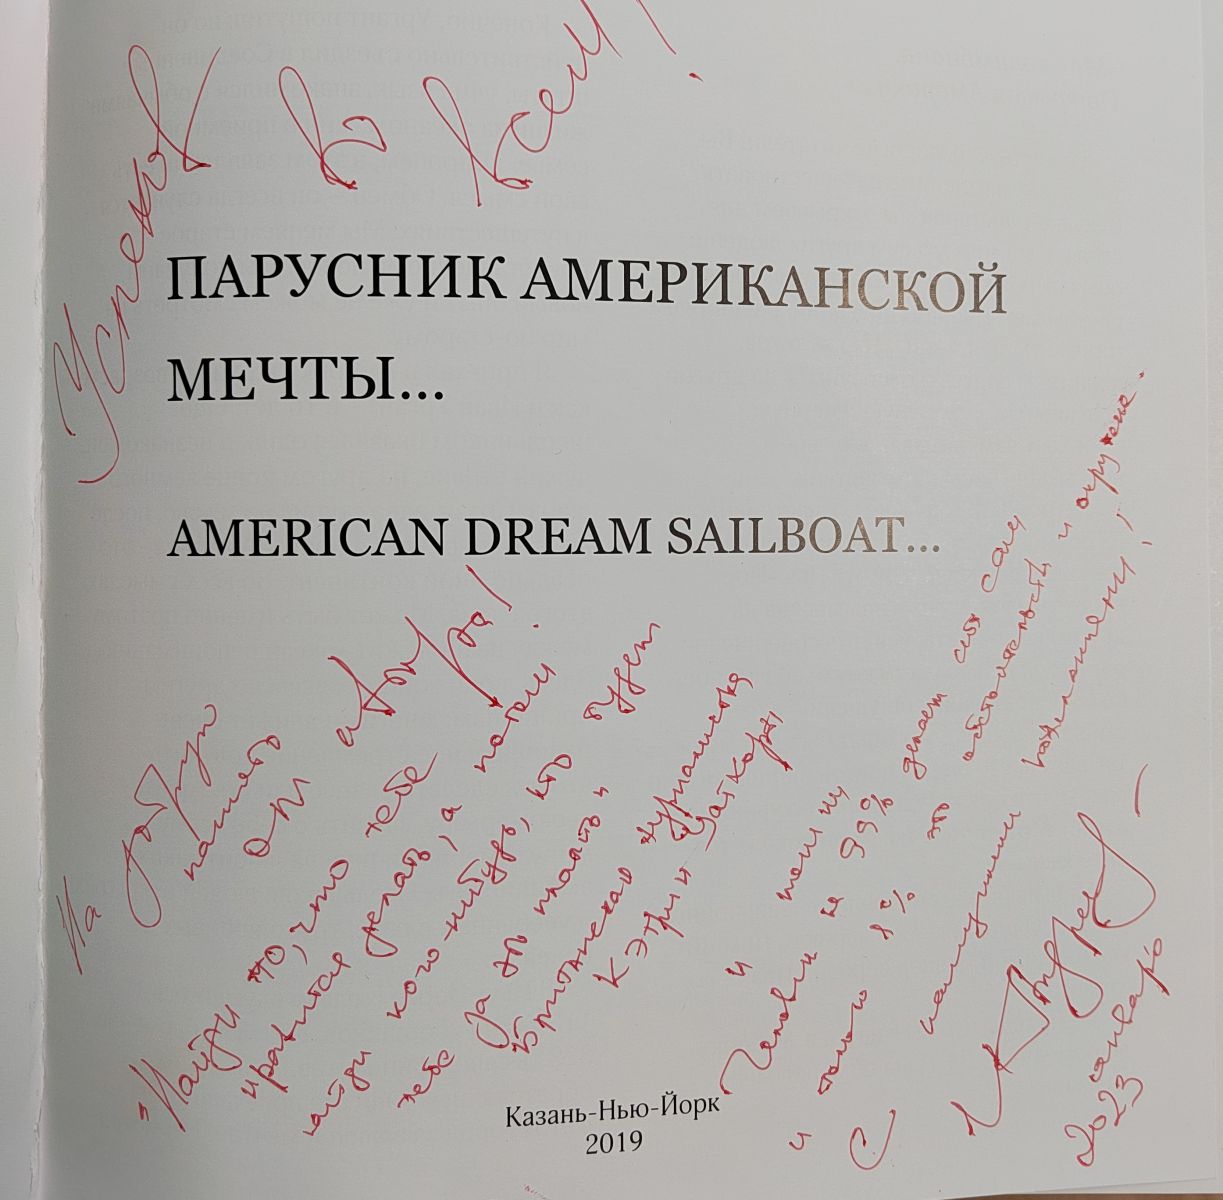 Успехов Во всем!
ПАРУСНИК АМЕРИКАНСКОЙ
МЕЧТЫ...
AMERICAN DREAM SAILBOAT...
На добрую
память
от автора!
"Найди то, что тебе
нравится делать, а потом
найди кого-нибудь, кто будет
тебе за это платить"
Британская журналистка
Кэтрин Уайтхорн
и помни
Человек на 99% делает себя сам,
и только 1% это обстоятельства и окружение.
С наилучшими пожеланиями!
январь
2023
Казань-Нью-Йорк
2019